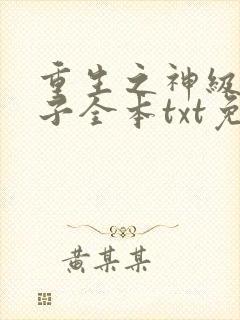 重生之神级
子全本txt免
黄某某